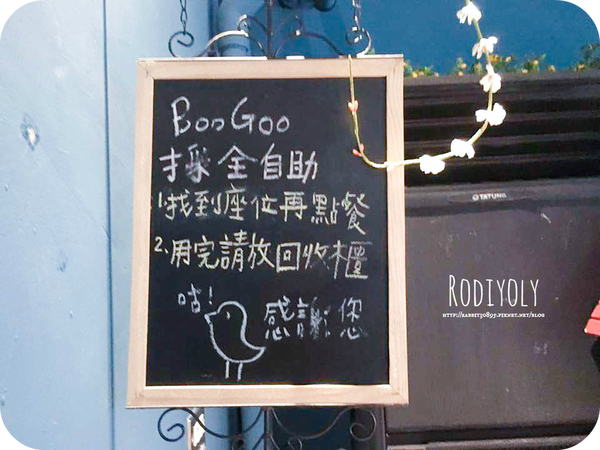 BooGoo
採全自助
1.找到座位再點餐
2.用完請放回收櫃
咕!
感謝您
TATUNG
RODIYOLY
HTTP://RABBIT30895.PIXNET.NET/BLOG